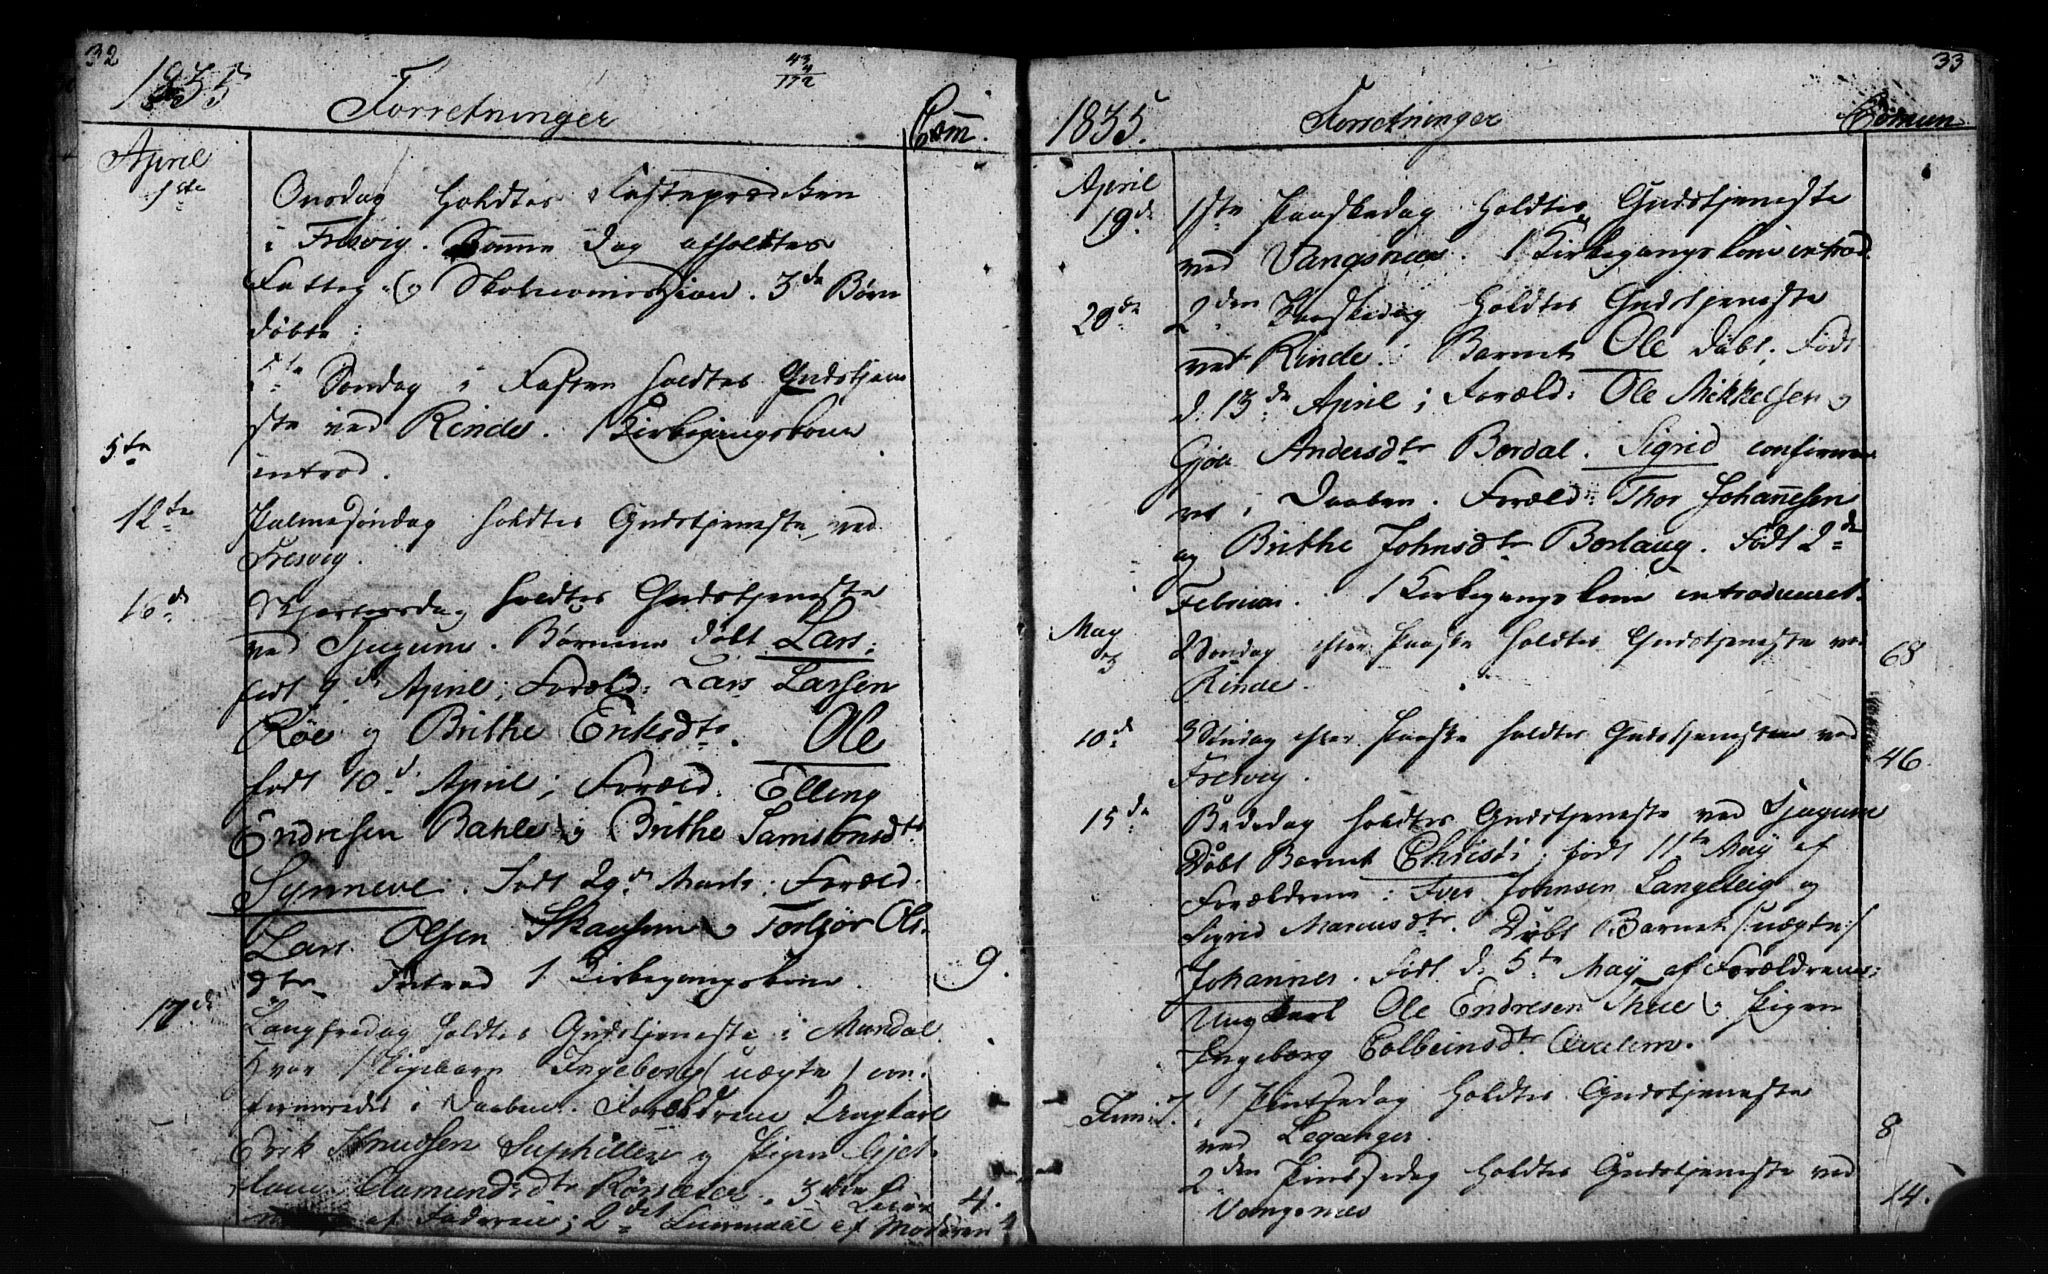 32
1835
Forretninger
43
4
172
Com̄.
April
1ste
Onsdag holdtes Fasteprædiken
i Fresvig. Samme Dag afholdtes
Fattig- og Skolecommission. 3de Børn
døbte.
5te Søndag i Fasten holdtes Gudstjene
5te
ste ved Rinde. 1 Kirkegangskone
introd.
12te
Palmesøndag holdtes Gudstjeneste ved
Fresvig.
16d
Skjertorsdag holdtes Gudstjeneste
ved Tjugum. Børnene døbt Lars:
født 9d April; Foræld: Lars Larsen
Røe og Brithe Eriksdtr. Ole
født 10d April; Foræld. Elling
Endresen Bahle og Brithe Samsonsdtr
Synneve. Født 29d Marts; Foræld.
Lars Olsen og Torbjør Ols-
dtr Introd 1 Kirkegangskone.
9.
17de
Langfredag holdtes Gudstjeneste i Mundal
hvor 1 Pigebarn Ingeborg (uægte) con-
firmeredes i Daaben. Forældrene Ungkarl
Erik Knudsen Suphellen og Pigen Gjet-
Aamundsdtr. 3die Leier
4.
af Faderen; 2det Leiermaal af Moderen
33
1835.
Forretninger
Commun
April
19d
1ste Paaskedag holdtes Gudstjeneste
ved Vangsnæs. 1 Kirkegangskone introd.
20de
2den Paaskedag holdtes Gudstjeneste
ved Rinde. Barnet Ole døbt. Født
d. 13de April; Foræld: Ole Mikkelsen og
Gjøe Andersdtr Bordal. Sigrid confirme-
ret i Daaben. Foræld: Thor Johannesen
og Brithe Johnsdtr Borlaug. Født 2de
Februar. 1 Kirkegangskone introduceret.
May
3
2 Søndag efter Paaske holdtes Gudstjeneste ved
68
Rinde.
10d
3 Søndag efter Paaske holdtes Gudstjenesten ved
Fresvig.
46
15de
Bededag holdtes Gudstjeneste ved Tjugum
Døbt Barnet Christi; født 11te May af
Forældrene: Iver Johnsen Langeteig og
Sigrid Marcusdtr. Døbt Barnet /:uægte:/
Johannes. Født d. 5te May af Forældrene:
Ungkarl Ole Endresen Thue og Pigen
Ingeborg Colbeinsdtr
Juni 7.
1 Pintsedag holdtes Gudstjeneste
ved Leganger.
8
2den Pintsedag holdtes Gudstjeneste ved
Vangsnæs
14.